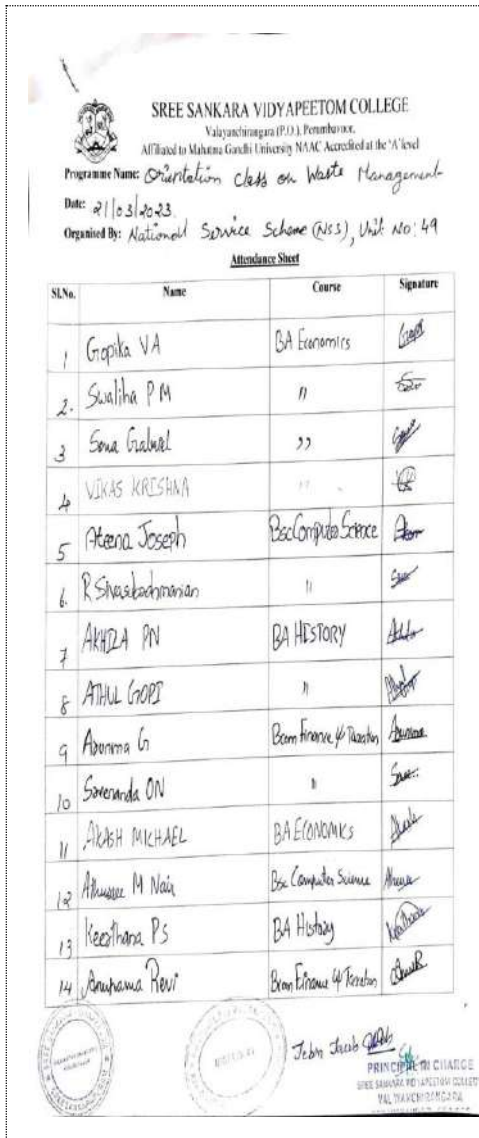 SREE SANKARA VIDYAPEETOM COLLEGE
Valayanchirangara (P.O.), Perumbavoor,
Affiliated to Mahatma Gandhi University NAAC Accredited at the 'A' level
Programme Name: Orientation Class on Waste Management
Date: 21/03/2023
Organised By: National Service Scheme (NSS), Unit No: 49
Attendance Sheet
Sl.No. Name Course Signature
1 Gopika VA BA Economics
2. Swaliha P M "
3 Sona Gabriel "
4 VIKAS KRISHNA "
5 Ateena Joseph Bsc Computer Science
6. R "
7 AKHILA PN BA HISTORY
8 ATHUL GOPI "
9 G Bcom Finance & Taxation
10 ON "
11 AKASH MICHAEL BA ECONOMICS
12 M Nair Bsc Computer Science
13 Keerthana PS BA History
14 Anupama Revi Bcom Finance & Taxation
Jebin Jacob
PRINCIPAL IN CHARGE
SREE SANKARA VIDYAPEETOM COLLEGE
VALAYANCHIRANGARA